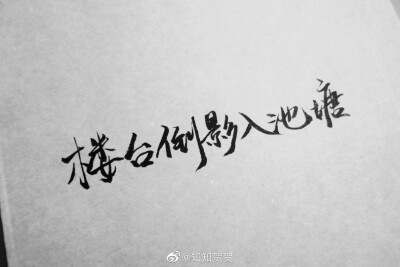 楼台倒影入池塘
@知知贺贺